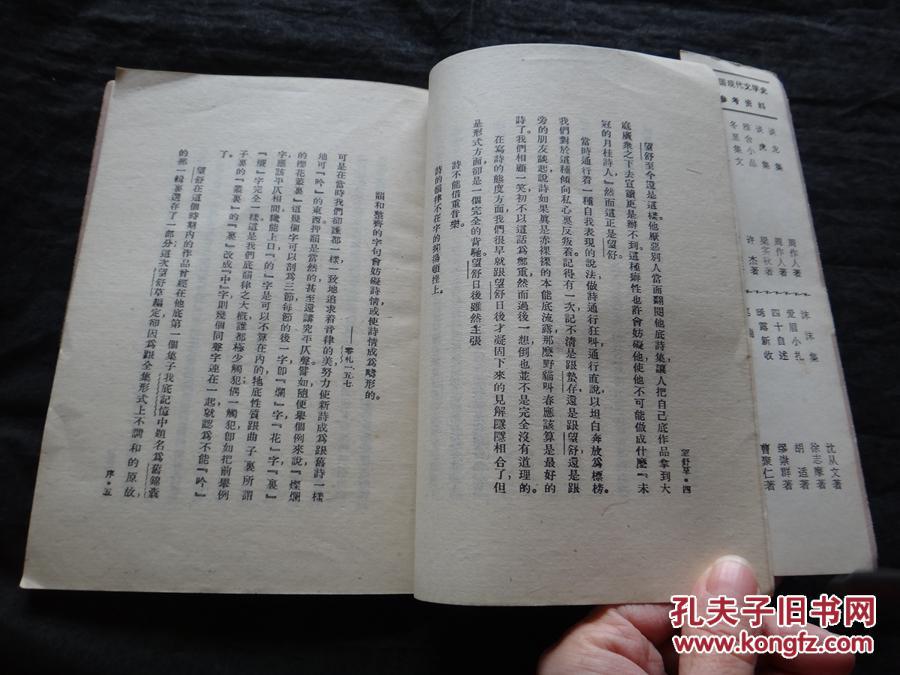 望舒草・四
望舒至今還是這樣。他厭惡別人當面翻閱他底詩集，讓人把自己底作品拿到大
庭廣衆之下去宣讀更是辦不到。這種癖性也許會妨礙他，使他不可能做成什麼『未
冠的月桂詩人』，然而這正是望舒。
當時通行着一種自我表現的說法，做詩通行狂叫，通行直說，以坦白奔放爲標榜。
我們對於這種傾向私心裏反叛着。記得有一次，記不清是跟蟄存，還是跟望舒，還是跟
旁的朋友談起，說詩如果眞是赤裸裸的本能底流露，那麼野貓叫春應該算是最好的
詩了。我們相顧一笑，初不以這話爲鄭重，然而過後一想，倒也並不是完全沒有道理的。
在寫詩的態度方面，我們很早就跟望舒日後才凝固下來的見解隱隱相合了，但
是形式方面，卻是一個完全的背馳。望舒日後雖然主張
詩不能借重音樂。
詩的韻律不在字的抑揚頓挫上。
韻和整齊的字句會妨礙詩情，或使詩情成爲畸形的。
——零札一、五、七
可是在當時我們卻誰都一樣，一致地追求着音律的美，努力使新詩成爲跟舊詩一樣
地可『吟』的東西。押韻是當然的，甚至還講究平仄聲。譬如隨便舉個例來說，『燦爛
的櫻花叢裏』這幾個字可以剖爲三節，每節的後一字，即『爛』字，『花』字，『裏』
字，應該平仄相間，纔能上口，『的』字是可以不算在內的，牠底性質跟曲子裏所謂
『襯』字完全一樣。這是我們底韻律之大概，誰都極少觸犯；偶一觸犯，即如把前舉例
子裏的『叢裏』的『裏』改成『中』字，則幾個同聲字連在一起，就認爲不能『吟』
了。
望舒在這個時期內的作品曾經在他底第一個集子我底記憶中題名爲舊錦囊
的那一輯裏選存了一部分；這次望舒草編定，卻因爲跟全集形式上不調和的原故，
序・五
國現代文學史
參考資料
談龍集　周作人著
談虎集　周作人著
雅舍小品　梁实秋著
冬至集文　许杰著
沫沫集　沈从文著
爱眉小扎　徐志摩著
四十自述　胡适著
瑪露新收　缪崇群著
曹聚仁著
孔夫子旧书网
www.kongfz.com